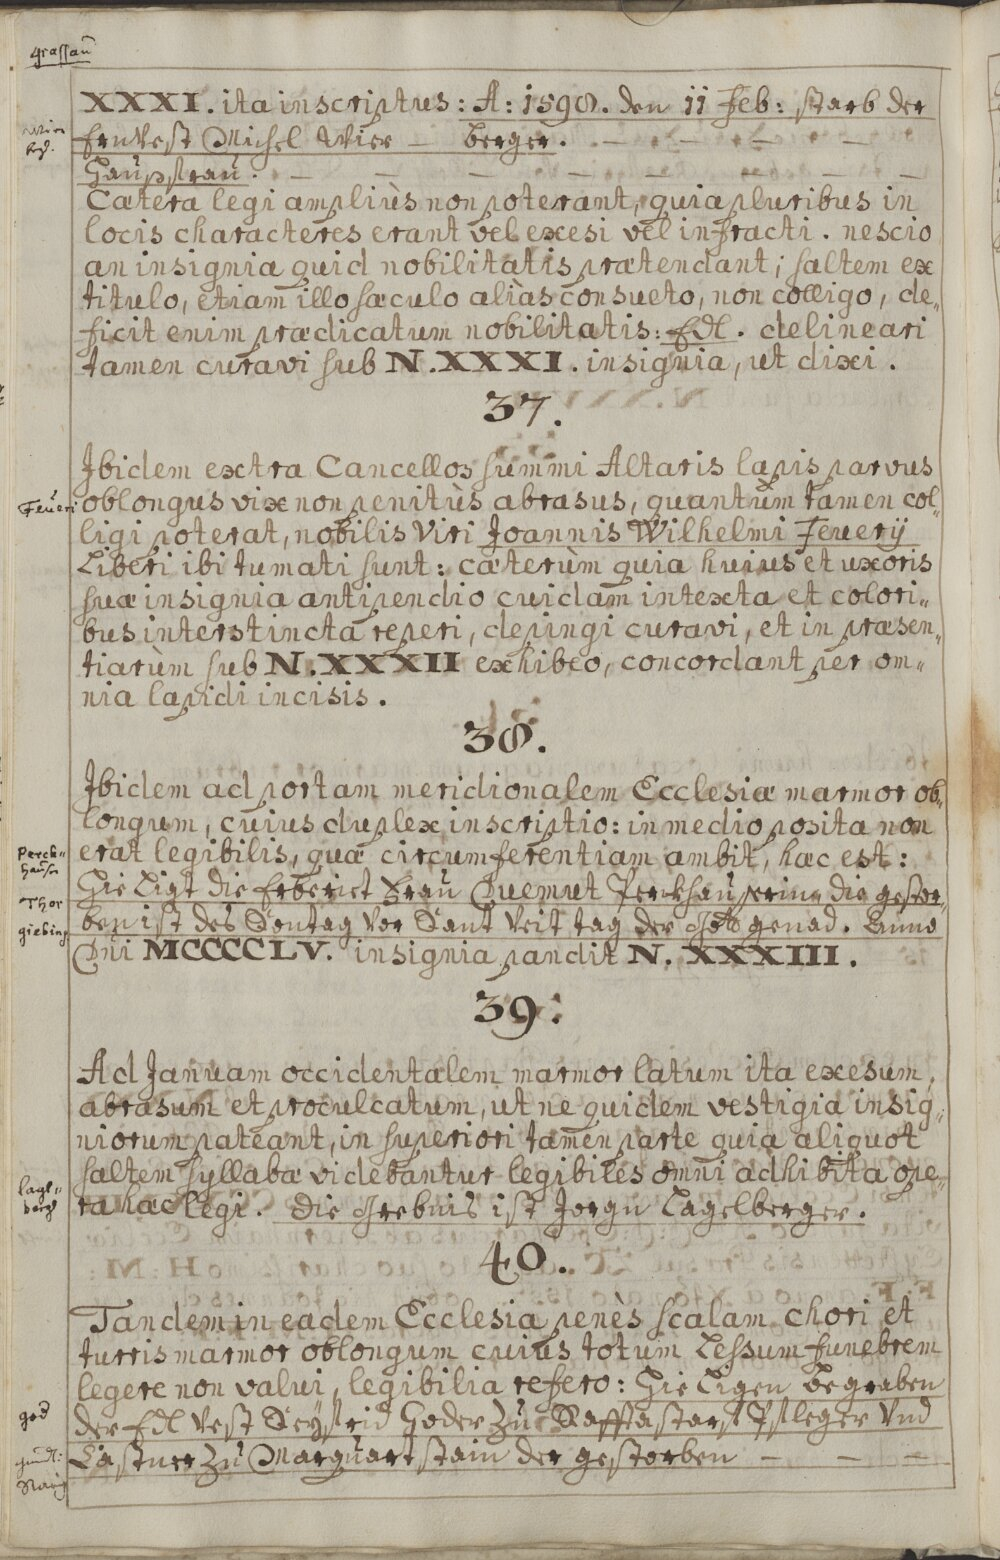 Grassau
XXXI. ita inscriptus: A: 1598. den 11 Feb: starb der
Ernvest Michel Wier – berger. – – – –
Haussfrau. – – – – – – – –
Cætera legi ampliùs non poterant, quia pluribus in
locis characteres erant vel exesi vel infracti. nescio
an insignia quid nobilitatis prætendant; saltem ex
titulo, etiam illo sæculo aliàs consueto, non colligo, de„
ficit enim prædicatum nobilitatis: Edl. delineari
tamen curavi sub N. XXXI. insignia, ut dixi.
37.
Ibidem extra Cancellos summi Altaris lapis parvus
Feueri
oblongus vix non penitùs abrasus, quantum tamen col„
ligi poterat, nobilis Viri Joannis Wilhelmi Feuerij
Liberi ibi tumati sunt: cæterùm quia huius et uxoris
suæ insignia antipendio cuidam intexta et colori„
bus interstincta reperi, depingi curavi, et in præsen„
tiarùm sub N. XXXII exhibeo, concordant per om„
nia lapidi incisis.
38.
Ibidem ad portam meridionalem Ecclesiæ marmor ob„
longum, cuius duplex inscriptio: in medio posita non
Perck„
hauser
erat legibilis, quæ circumferentiam ambit, hæc est:
Thor
Hie Ligt die Erberict Frau Quemut Perkhauserin, die gestor„
giebing
ben ist des Sontag vor Sant Veit tag der Gott genad. Anno
Dni MCCCCLV. insignia pandit N. XXXIII.
39.
Ad Januam occidentalem marmor latum ita exesum,
abrasum et proculcatum, ut ne quidem vestigia insig„
niorum pateant, in superiori tamen parte quia aliquot
saltem syllabæ videbantur legibiles omni adhibita ope„
lagl„
berg
ra hæc legi. Die Grebnis ist Jorgn Lagelberger.
40.
Tandem in eadem Ecclesia penès scalam chori et
turris marmor oblongum cuius totum Lessum funebrem
legere non valui, legibilia refero: Hie Ligen begraben
god
der Edl Vest Seyfrid Goder zu Safftastorf Pfleger Vnd
Castner zu Marquartstain der gestorben – – –